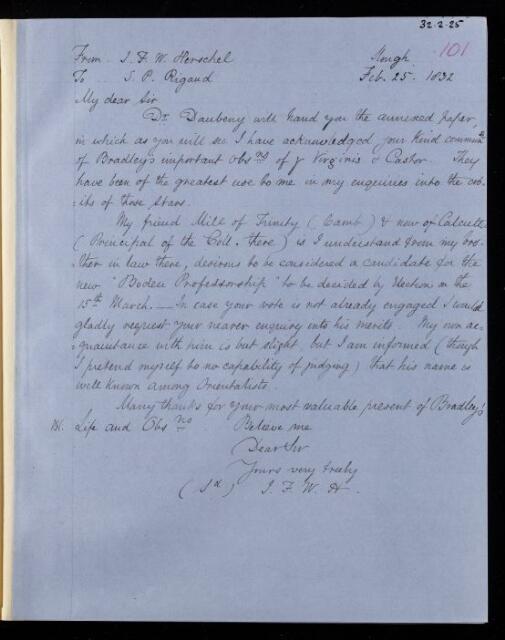 32.2.25
101
From . J. F. W. Herschel Slough
To .. S. P. Rigaud Feb. 25. 1832
My dear Sir
Dr. Daubeny will hand you the annexed paper,
in which as you will see I have acknowledged your kind communn
of Bradley's important obsns of γ Virginis & Castor. They
have been of the greatest use to me in my enquiries into the or-
bits of those stars.
My friend Mill of Trinity (Camb) & now of Calcutta
(Principal of the Coll. there) is I understand from my bro-
ther in law there, desirous to be considered a candidate for the
new "Boden Professorship" to be decided by election on the
15th March. — In case your vote is not already engaged I would
gladly request your nearer enquiry into his merits. My own ac-
quaintance with him is but slight, but I am informed (though
I pretend myself to no capability of judging) that his name is
well known among Orientalists.
Many thanks for your most valuable present of Bradley's
Life and Obsns Believe me
Dear Sir
Yours very truly
(Sd) J. F. W. H.